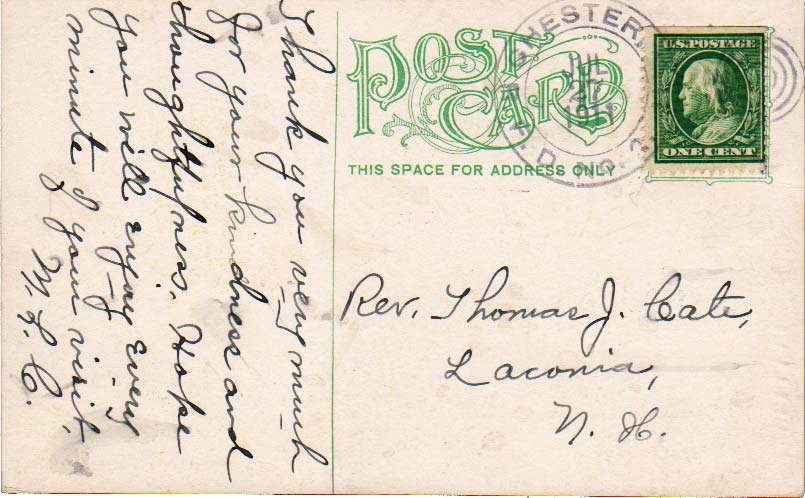 Thank you very much
for your kindness and
thoughtfulness. Hope
you will enjoy every
minute of your visit.
M. L. C.
POST CARD
THIS SPACE FOR ADDRESS ONLY
CHESTER,
JUL
1911
R.F.D. NO.
U.S. POSTAGE
ONE CENT
Rev. Thomas J. Cate,
Laconia,
N. H.